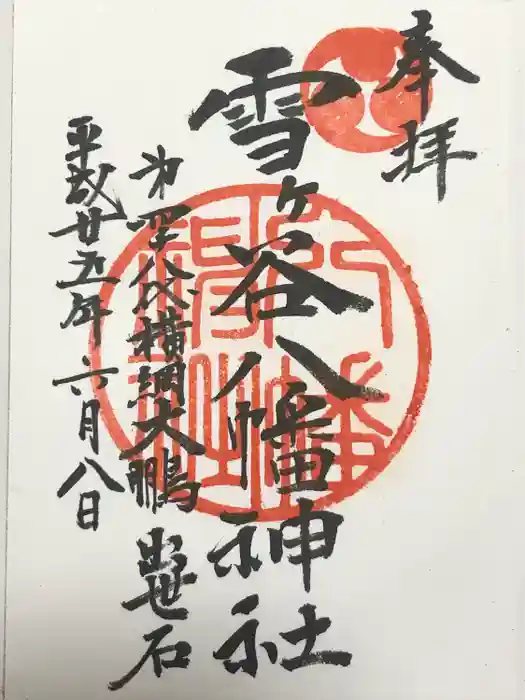 奉拝
雪ヶ谷八幡神社
第四十八代横綱大鵬出世石
平成廿五年六月八日